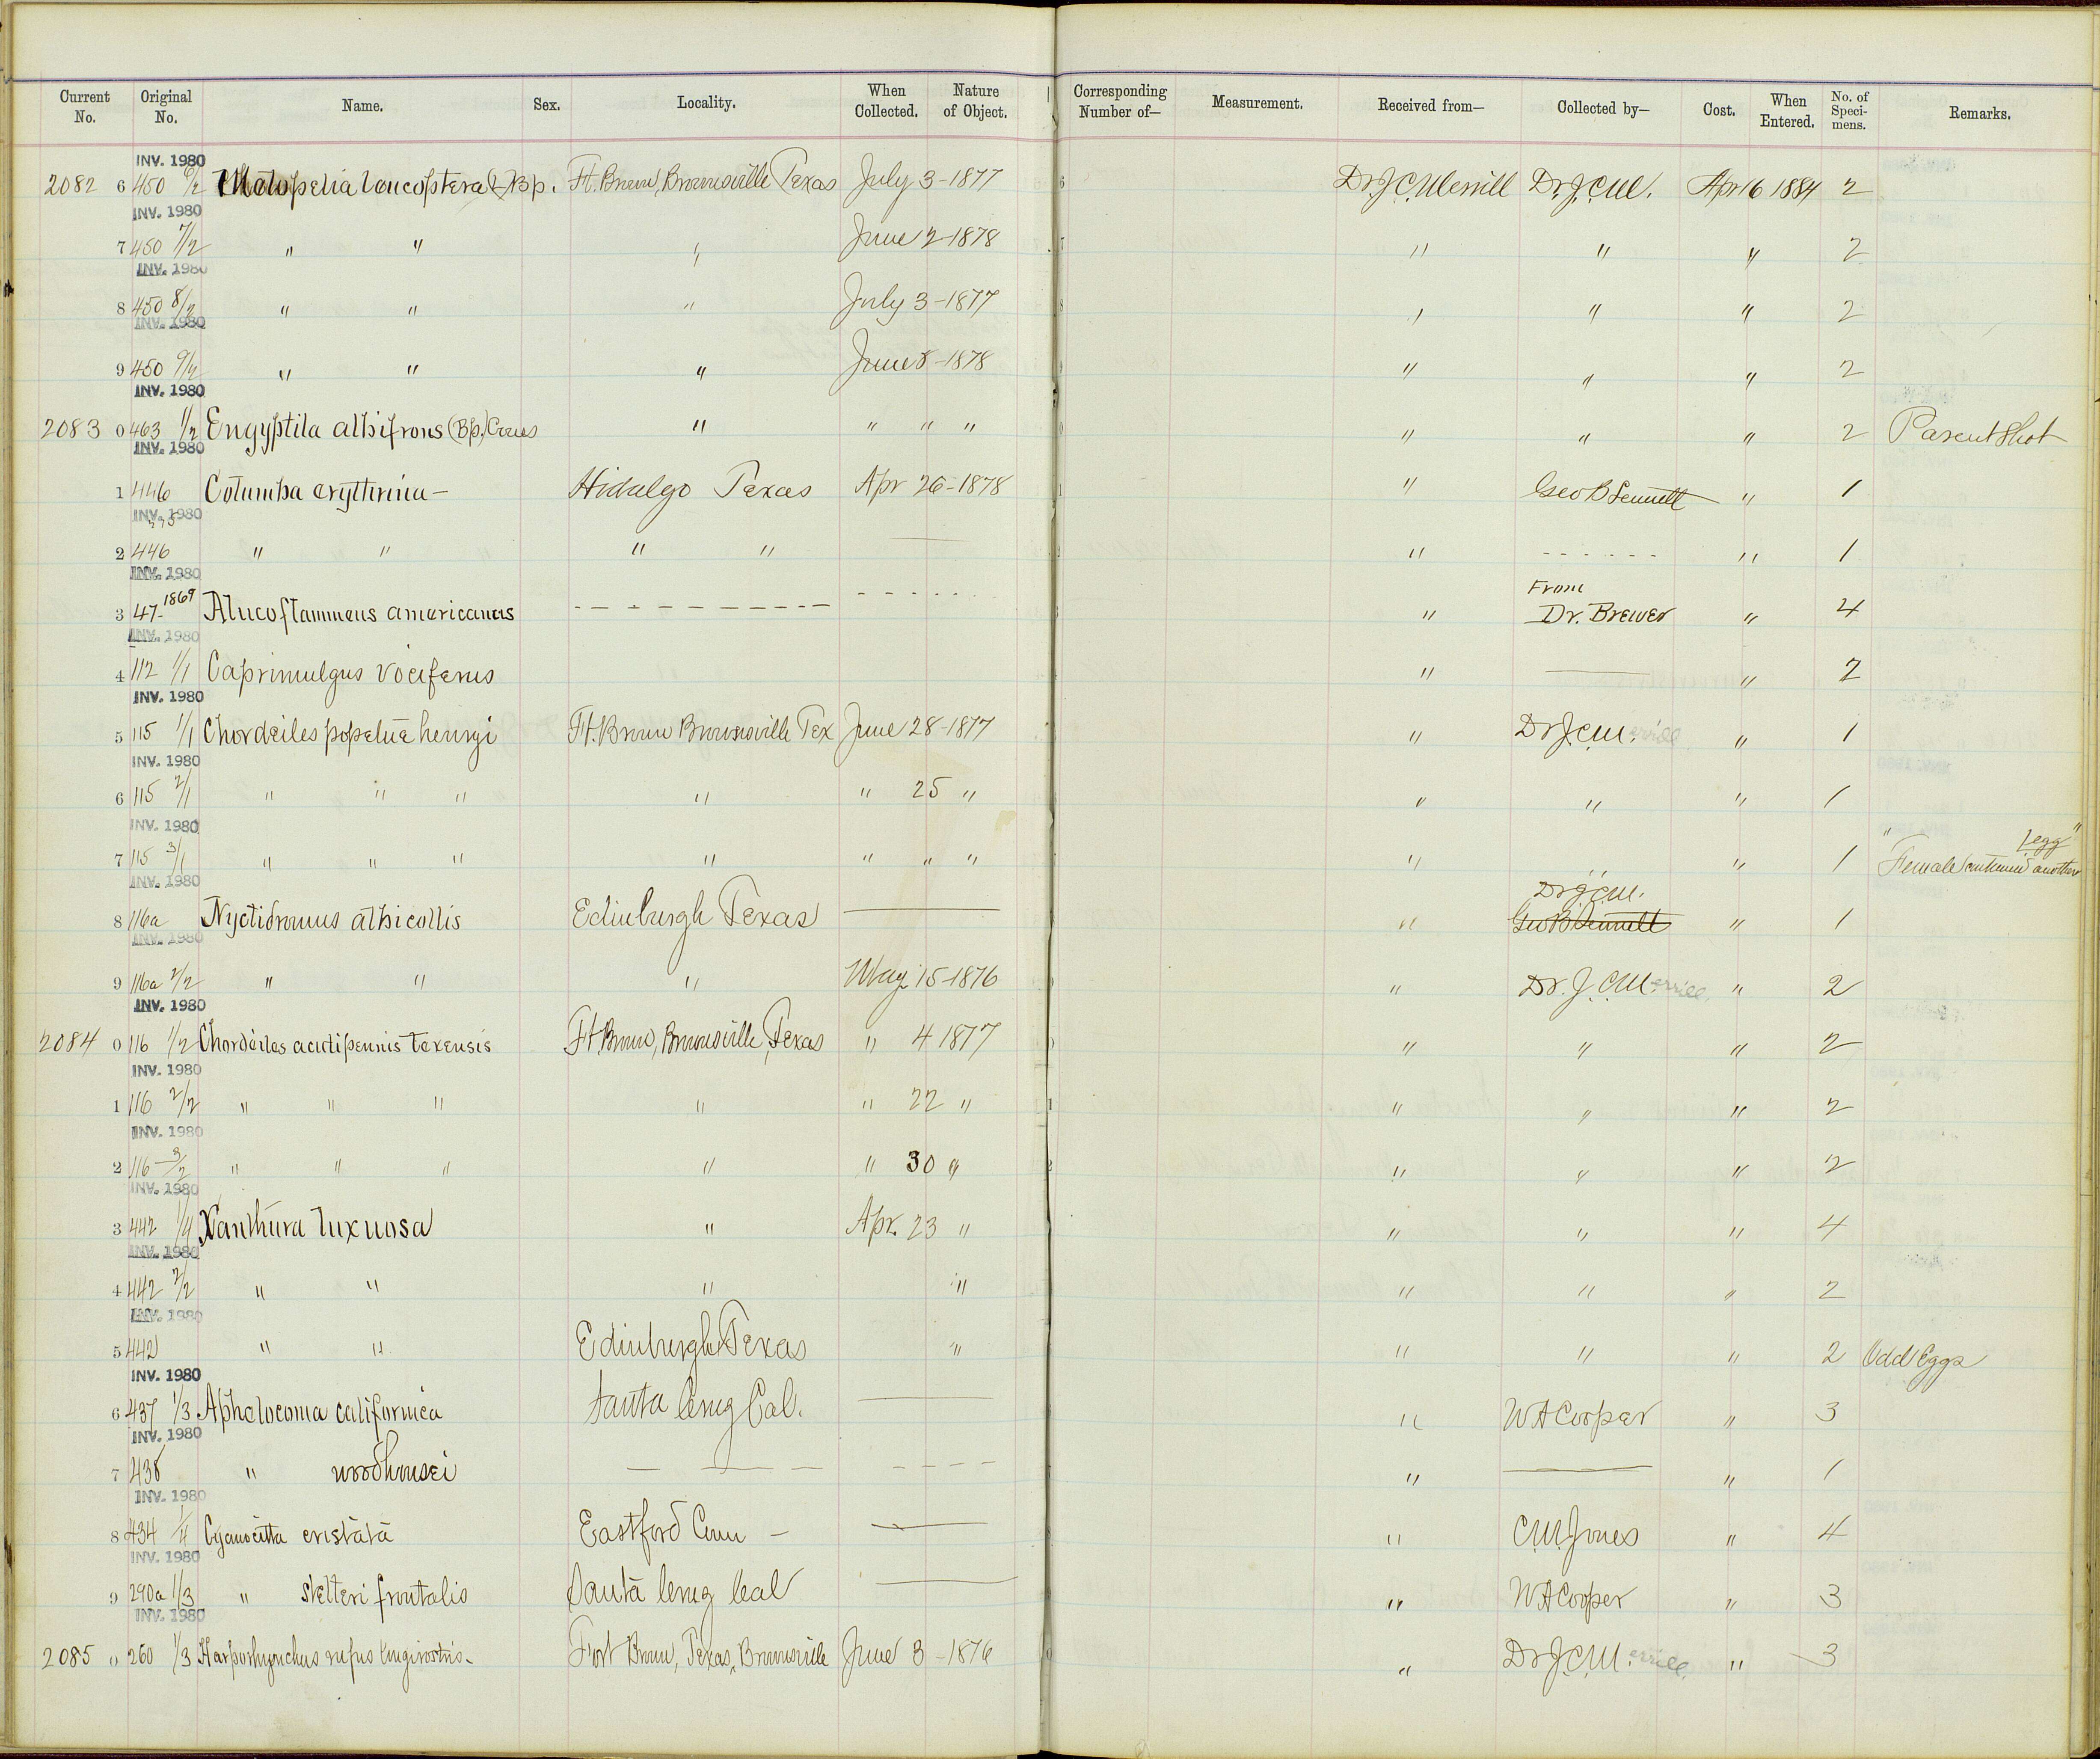 Current No. Original No. Name. Sex. Locality. When Collected. Nature of Object. Corresponding Number of— Measurement. Received from— Collected by— Cost. When Entered. No. of Specimens. Remarks.
INV. 1980
2082 6 450 6/2 Melopelia leucoptera (L) Bp. Ft. Brown, Brownsville Texas July 3-1877 Dr. J. C. Merrill Dr. J. C. M. Apr 16 1884 2
INV. 1980
7 450 7/2 " " " June 2-1878 " " " 2
INV. 1980
8 450 8/2 " " " July 3-1877 " " " 2
INV. 1980
9 450 9/2 " " " June 8-1878 " " " 2
INV. 1980
2083 0 463 1/2 Engyptila albifrons (Bp.) Coues " " " " " " " 2 Parent Shot
INV. 1980
1 446 Columba erythrina — Hidalgo Texas Apr 26-1878 " Geo B Sennett " 1
INV. 1980
2 446 " " " " — " - - - - - - " 1
INV. 1980
From
3 47- 1869 Aluco flammeus americanus - - - - - - - - - - - - - - - " Dr. Brewer " 4
INV. 1980
4 112 1/1 Caprimulgus vociferus " — " 2
INV. 1980
5 115 1/1 Chordeiles popetue henryi Ft. Brown Brownsville Tex June 28-1877 " Dr J. C. M.errill " 1
INV. 1980
6 115 2/1 " " " " " 25 " " " " 1
INV. 1980
" 1 egg"
7 115 3/1 " " " " " " " " " " 1 Female contained another
INV. 1980
Dr J. C. M.
8 116a Nyctidromus albicollis Edinburgh Texas — " Geo B Sennett " 1
INV. 1980
9 116a 2/2 " " " May 15-1876 " Dr. J. C. M.errill. " 2
INV. 1980
2084 0 116 1/2 Chordeiles acutipennis texensis Ft. Brown, Brownsville, Texas " 4 1877 " " " 2
INV. 1980
1 116 2/2 " " " " " 22 " " " " 2
INV. 1980
2 116 - 3/2 " " " " " 30 " " " " 2
INV. 1980
3 442 1/4 Xanthura luxuosa " Apr. 23 " " " " 4
INV. 1980
4 442 2/2 " " " " " " " 2
INV. 1980
5 442 " " Edinburgh Texas " " " " 2 Odd Eggs
INV. 1980
6 437 1/3 Aphelocoma californica Santa Cruz Cal. — " W A Cooper " 3
INV. 1980
7 438 " woodhousei — — — - - - - " — " 1
INV. 1980
8 434 1/4 Cyanocitta cristata Eastford Conn — — " C. M. Jones " 4
INV. 1980
9 290a 1/3 " stelleri frontalis Santa Cruz Cal — " W A Cooper " 3
INV. 1980
2085 0 260 1/3 Harporhynchus rufus longirostris. Fort Brown, Texas, Brownsville June 3-1876 " Dr J. C. M.errill. " 3